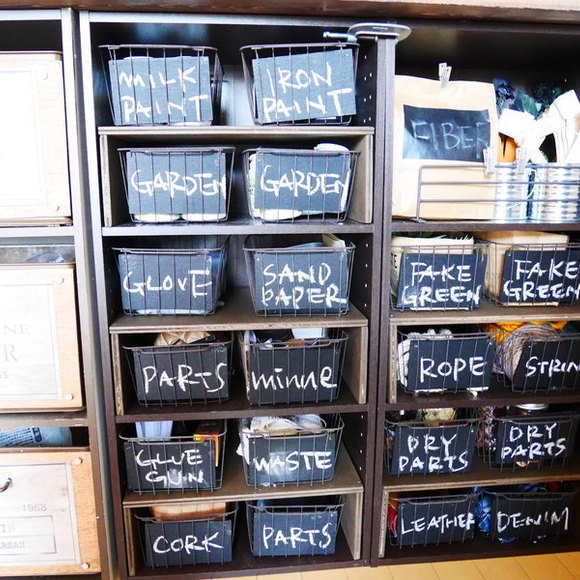 MILK
PAINT
IRON
PAINT
GARDEN
GARDEN
GLOVE
SAND
PAPER
PARTS
minne
GLUE
GUN
WASTE
CORK
PARTS
FIBER
FAKE
GREEN
FAKE
GREEN
ROPE
STRIN
DRY
PARTS
DRY
PARTS
LEATHER
DENIM
NE
R
S
1968
IN